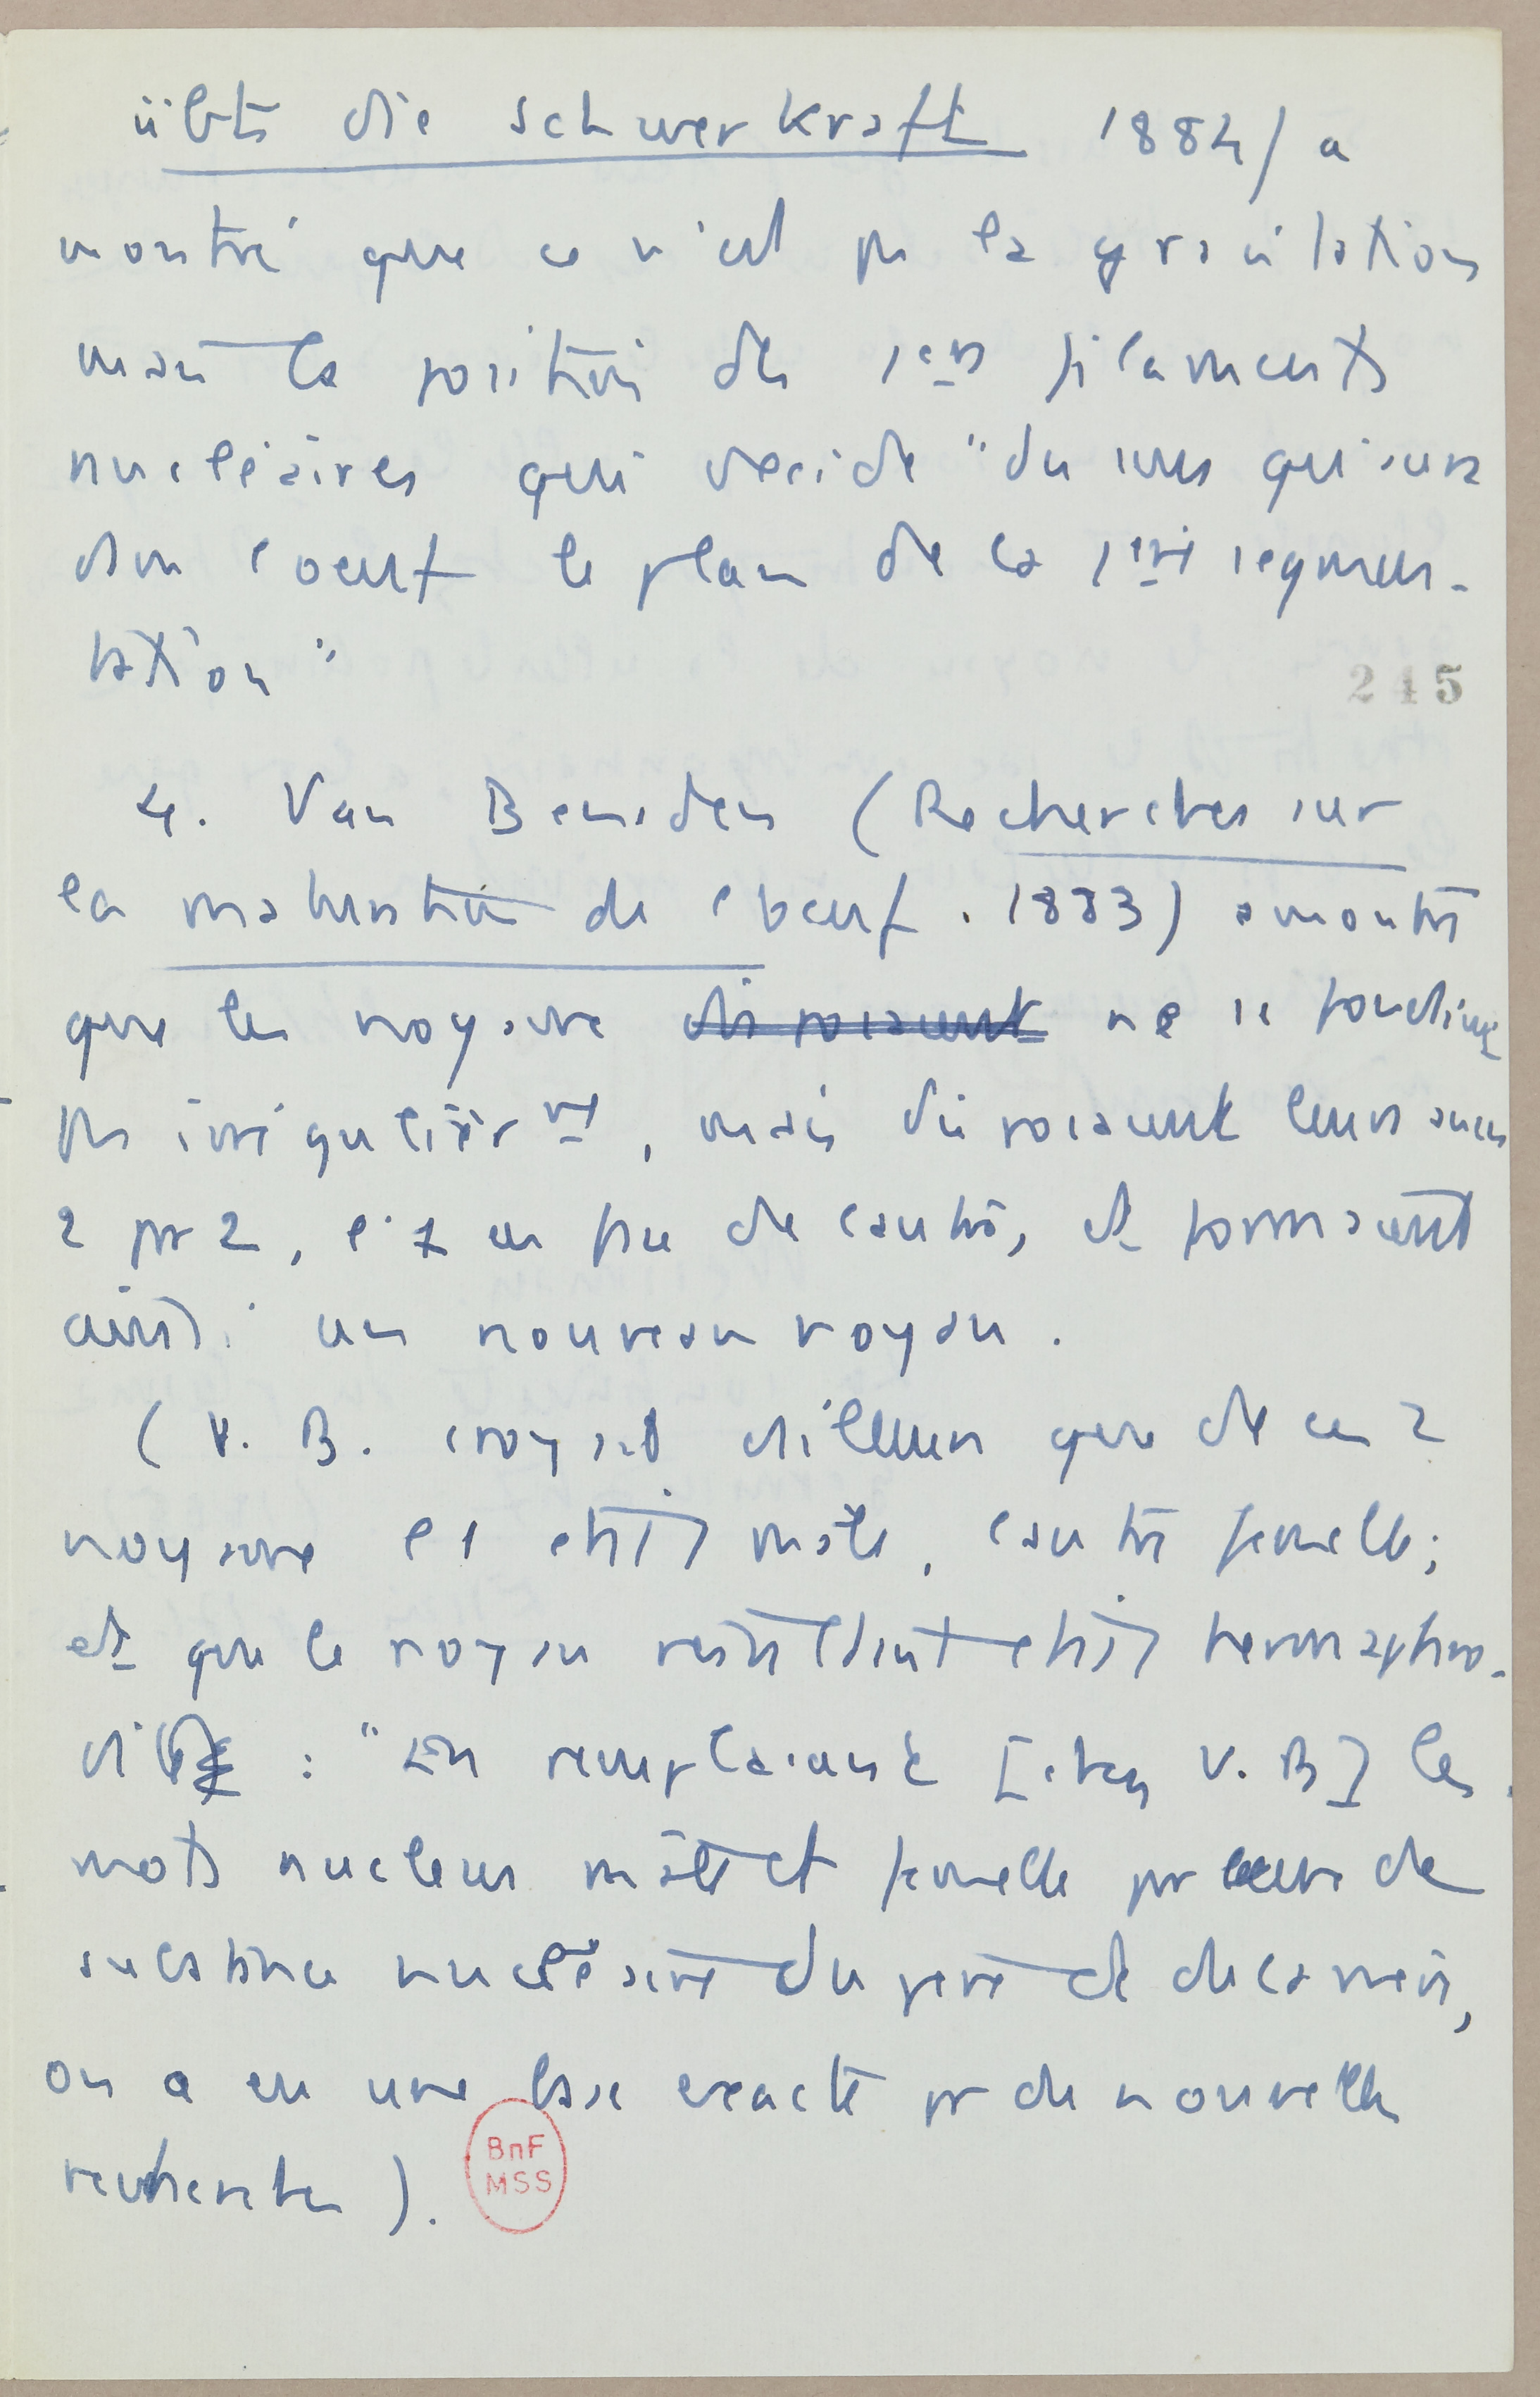 übt die Schwerkraft 1884/ a
montré que ce n'est pas la gravitation
mais la position des 1ers filaments
nucléaires qui décide "du sens qu'aura
dans l'oeuf le plan de la 1ere segmen-
tation"
245
4. Van Beneden (Recherches sur
la maturation de l'oeuf. 1883) a montré
que les noyaux disposaient ne se fondaient
pas irrégulièrmt, mais disposaient leurs anses
2 pr 2, l'1 en face de l'autre, et formaient
ainsi un nouveau noyau.
(V. B. croyait d'ailleurs que de ces 2
noyaux l'1 était mâle, l'autre femelle;
et que le noyau résultant était hermaphro-
dite : "En remplaçant [chez V. B] les
mots nucleus mâle et femelle pr ceux de
substance nucléaire du père et de la mère,
on a eu une base exacte pr de nouvelles
recherches).
BnF
MSS